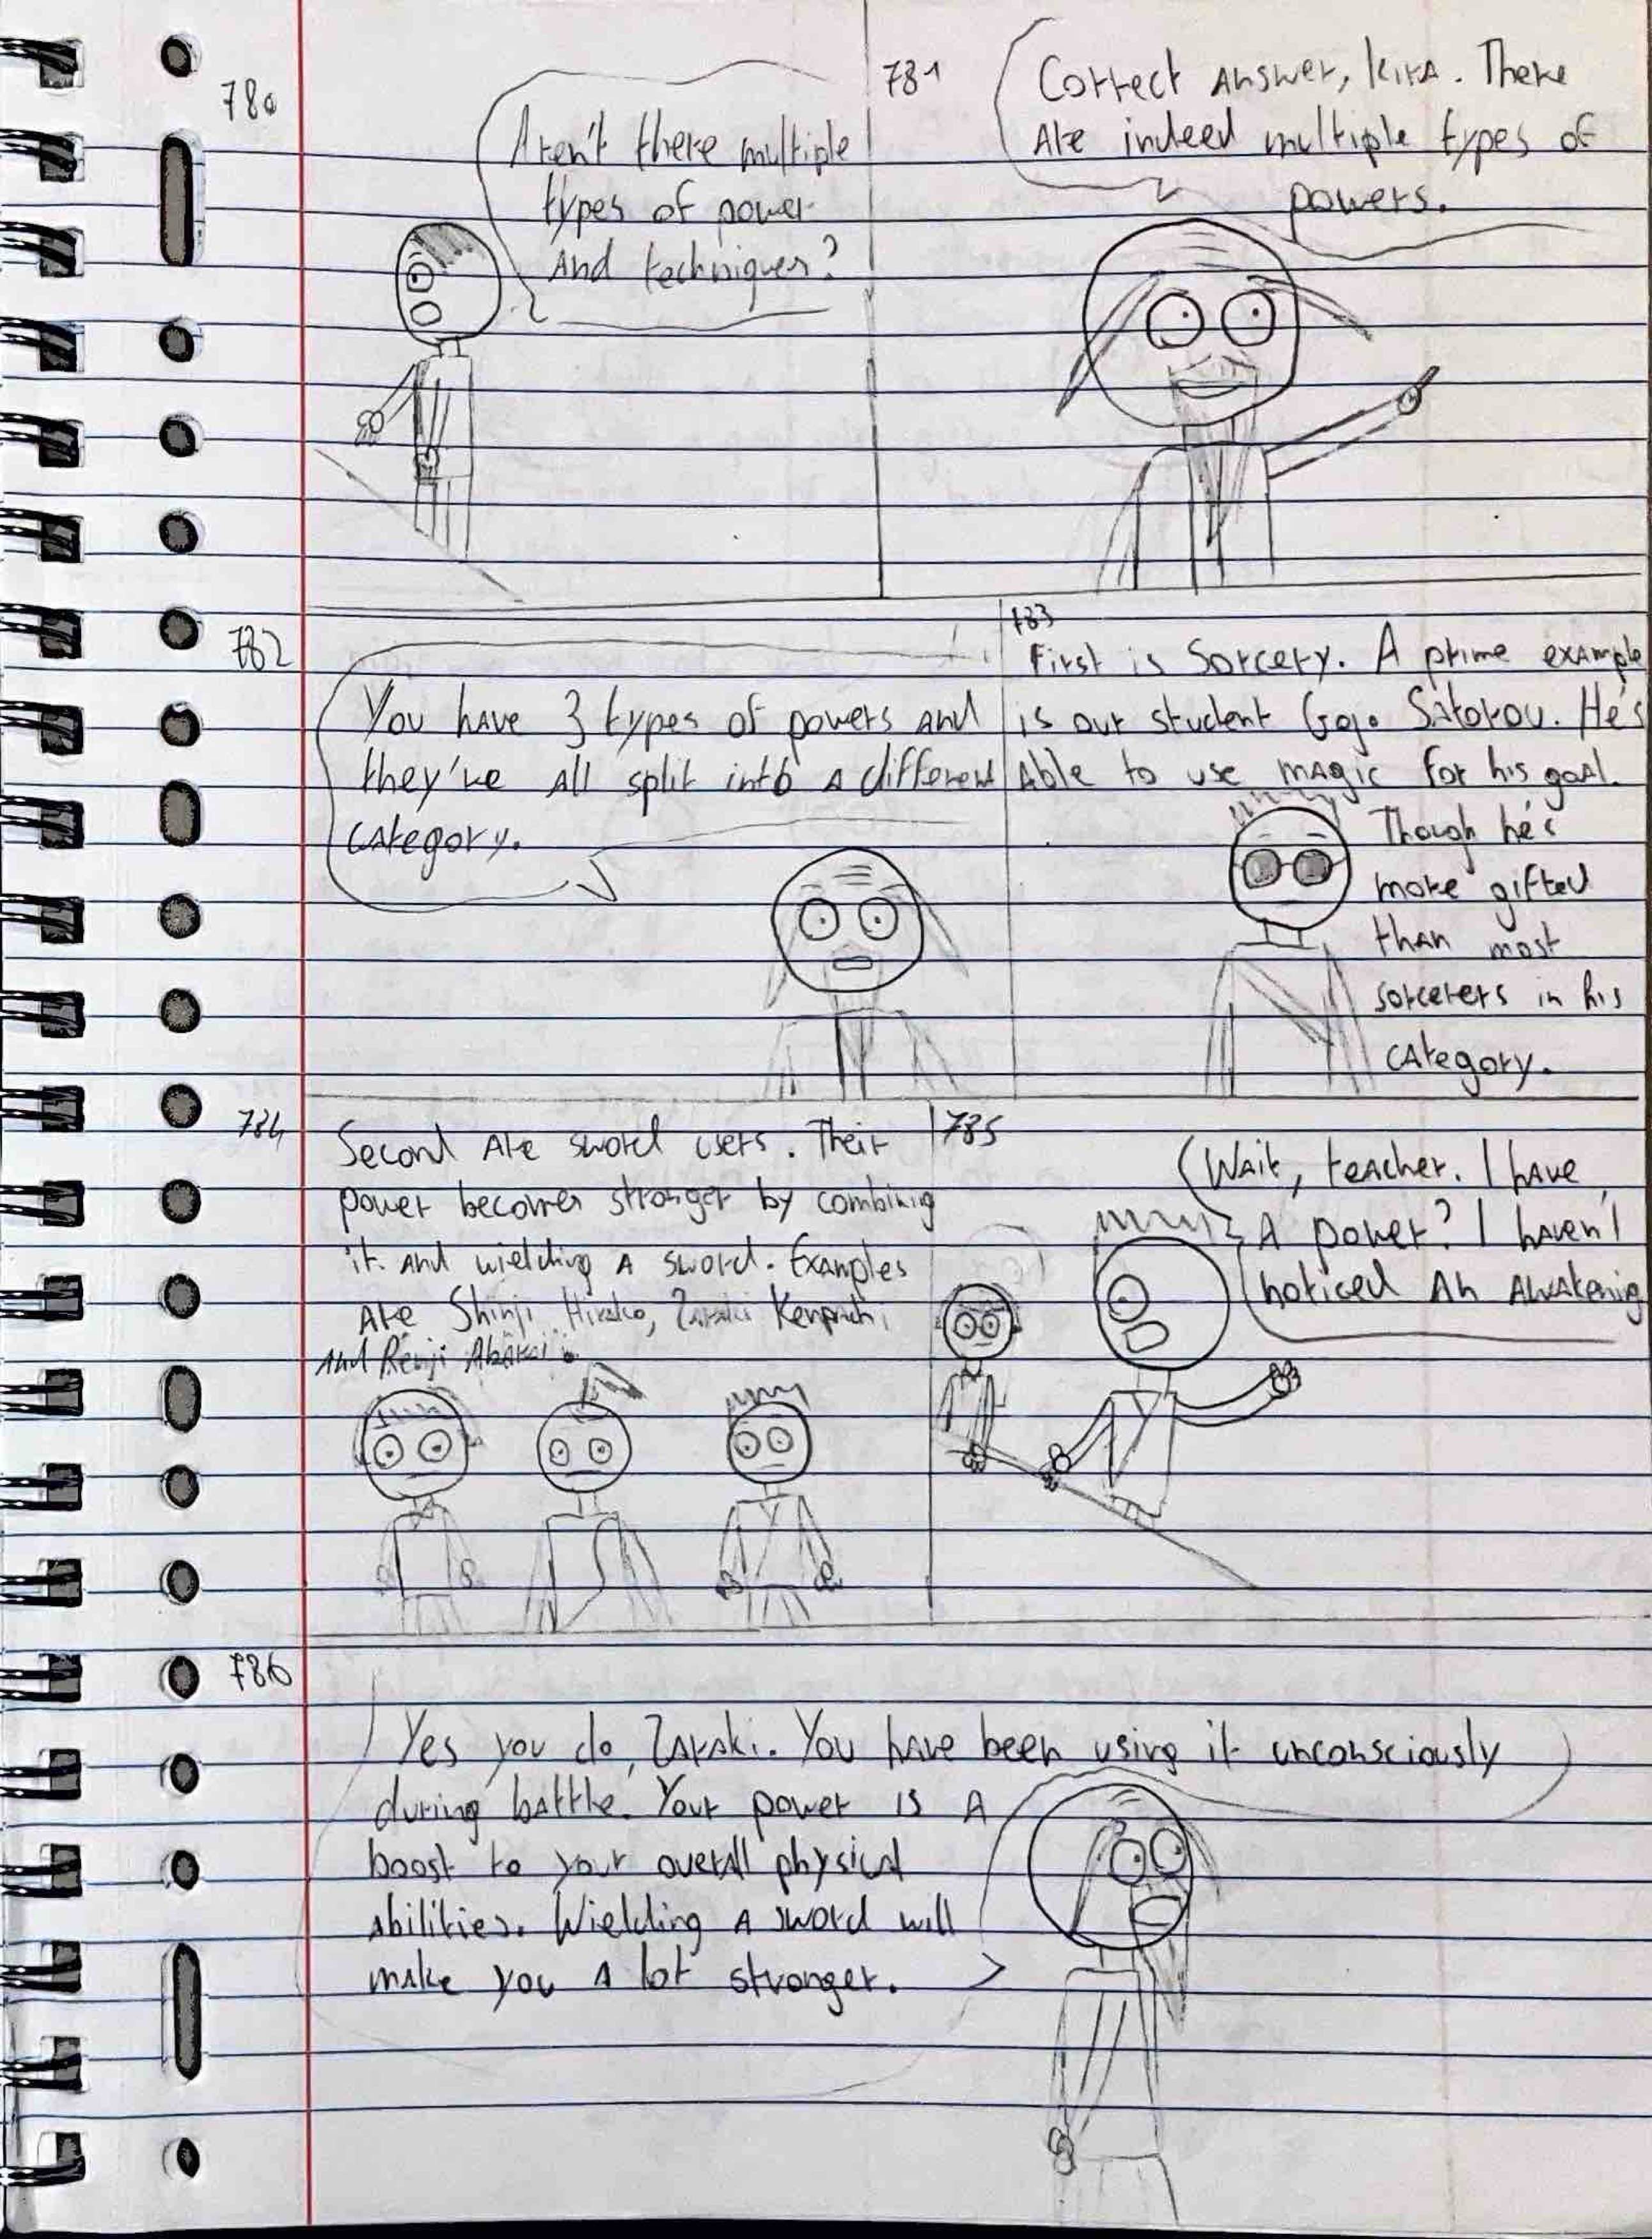 780
Aren't there multiple
types of power
And techniques?
781
Correct Answer, KirA. There
Are indeed multiple types of
powers.
782
You have 3 types of powers and
they're All split into A different
category.
783
First is Sorcery. A prime example
is our student Gojo Satorou. He's
Able to use magic for his goal.
Though he's
more gifted
than most
sorcerers in his
category.
784
Second Are sword users. Their
power becomes stronger by combining
it And wielding A sword. Examples
Are Shinji Hirako, Zaraki Kenpachi,
And Renji Abarai.
785
Wait, teacher. I have
A power? I haven't
noticed An Awakening
786
Yes you do, Zaraki. You have been using it unconsciously
during battle. Your power is A
boost to your overall physical
Abilities. Wielding A sword will
make you A lot stronger.